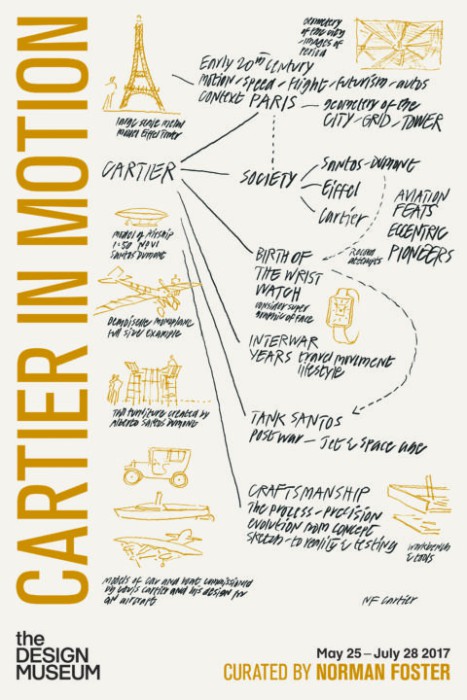 CARTIER IN MOTION
geometry
of the city
-images of
period
Early 20th Century
motion-speed-flight-futurism-autos
CONTEXT PARIS — geometry of the
CITY-GRID-TOWER
large scale metal
model Eiffel Tower
CARTIER
SOCIETY
Santos-Dumont
Eiffel
Cartier
AVIATION
FEATS
ECCENTRIC
PIONEERS
model of Airship
1:50 No VI
Santos Dumont
BIRTH OF
THE WRIST
WATCH
consider super
graphic of face
Record
attempts
Demoiselle monoplane
full size example
INTERWAR
YEARS travel movement
lifestyle
The furniture created by
Alberto Santos Dumont
TANK SANTOS
Post war — Jet & Space age
CRAFTSMANSHIP
The process-precision
evolution from concept
sketch-to reality & testing
workbench
& tools
models of car and boat commissioned
by Louis Cartier and his design for
an aircraft
NF Cartier
the
DESIGN
MUSEUM
May 25 – July 28 2017
CURATED BY NORMAN FOSTER